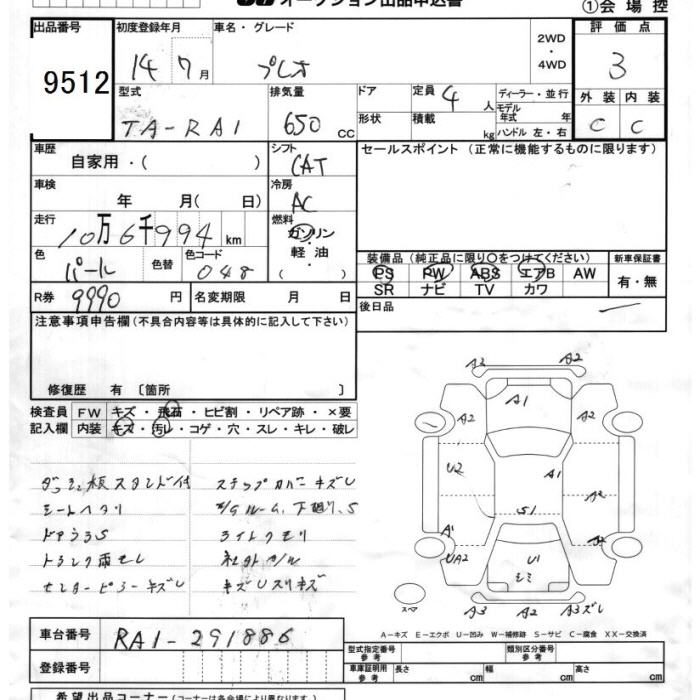 オークション出品申込書
①会場控
出品番号 初度登録年月 車名・グレード 評価点
9512 14 7月 プレオ 2WD・4WD 3
型式 排気量 ドア 定員 4人 ディーラー・並行 外装 内装
TA-RA1 650cc 形状 積載 kg モデル年式 年 ハンドル 左・右 C C
車歴 自家用・( ) シフト CAT セールスポイント (正常に機能するものに限ります)
車検 年 月( 日) 冷房 AC
走行 10万6千994km 燃料 ガソリン・軽油・( )
色 パール 色替 色コード 048
装備品 (純正品に限り○をつけてください) 新車保証書
PS PW ABS エアB AW 有・無
SR ナビ TV カワ
R券 9990円 名変期限 月 日 後日品 ー
注意事項申告欄 (不具合内容等は具体的に記入して下さい)
修復歴 有 〔箇所 〕
検査員 FW キズ・飛石・ヒビ割・リペア跡・×要
記入欄 内装 キズ・汚レ・コゲ・穴・スレ・キレ・破レ
ダッシュ板スタンド付 ステップカバーキズU
シートヘタリ 下廻り、S
ドアうらS ライトクモリ
トランク雨モレ 社外
センターピラーキズU キズUスリキズ
A2 A2
A1
A2 A2
U2 A1 A2
S1
A1 A2
UA2 U1
シミ
スペア A3 A2 A3ズレ
A-キズ E-エクボ U-凹み W-補修跡 S-サビ C-腐食 XX-交換済
車台番号 RA1-291886
登録番号
型式指定番号 参考 類別区分番号 参考
車庫証明用 参考 長さ cm 幅 cm 高さ cm
希望出品コーナー (コーナーは各会場により異なります)